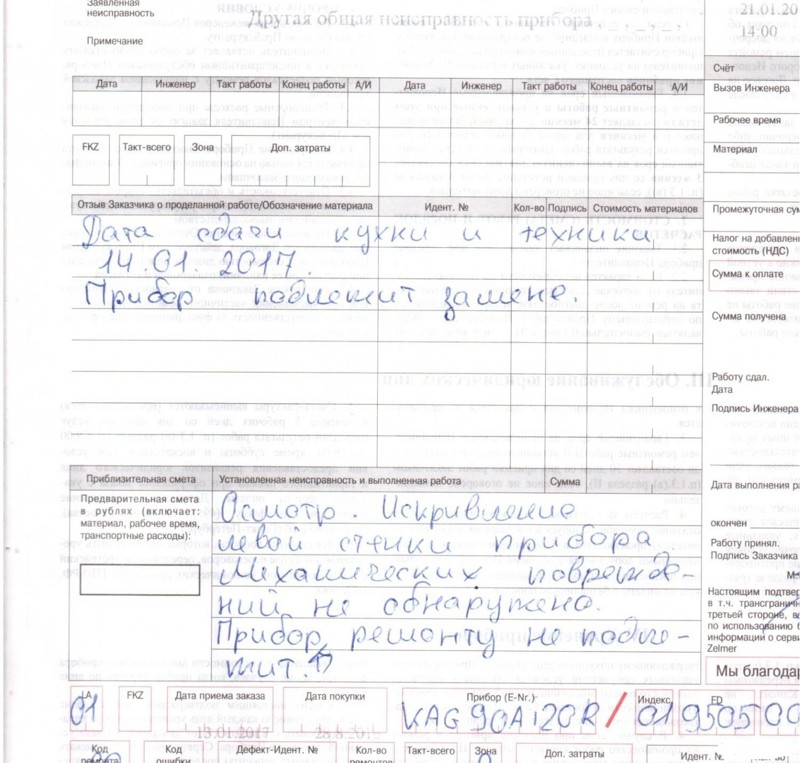 Заявленная
неисправность
Другая общая неисправность прибора , _ , _ , _ ,
21.01.20
14:00
Примечание
Счёт
Дата Инженер Такт работы Конец работы А/И Дата Инженер Такт работы Конец работы А/И
Вызов Инженера
Рабочее время
FKZ Такт-всего Зона Доп. затраты
Материал
Отзыв Заказчика о проделанной работе/Обозначение материала Идент. № Кол-во Подпись Стоимость материалов
Промежуточная сум
Дата сдачи кухни и техники
14.01.2017.
Прибор подлежит замене.
Налог на добавлен
стоимость (НДС)
Сумма к оплате
Сумма получена
Работу сдал.
Дата
Подпись Инженера
III. Обслуживание юридических лиц
Приблизительная смета Установленная неисправность и выполненная работа Сумма
Предварительная смета
в рублях (включает:
материал, рабочее время,
транспортные расходы):
Осмотр. Искривление
левой стенки прибора.
Механических поврежде-
ний не обнаружено.
Прибор ремонту не подле-
жит.
Дата выполнения ра
окончен
Работу принял.
Подпись Заказчика
Настоящим подтвер
в т.ч. трансгранич
третьей стороне, в
по использованию б
информации о серви
Zelmer
Мы благодар
LA FKZ Дата приема заказа Дата покупки Прибор (E-Nr.) Индекс FD
01 KAG90AI20R / 01 9505 00
13.01.2017 28.8.201
Код
ремонта
Код
ошибки
Дефект-Идент. № Кол-во
ремонтов
Такт-всего Зона Доп. затраты Идент. №